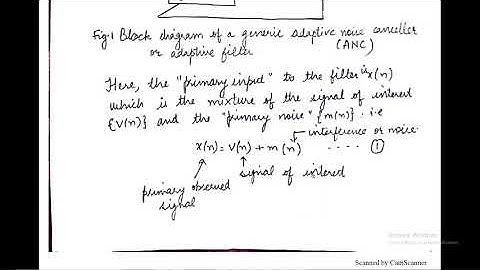 Fig·1 Block diagram of a generic adaptive noise canceller
or adaptive filter (ANC)
Here, the "primary input" to the filter is x(n)
which is the mixture of the signal of interest
{V(n)} and the "primary noise" {m(n)} . i.e
interference or noise.
x(n) = V(n) + m(n) ---- ①
signal of interest
primary observed
signal
Scanned by CamScanner